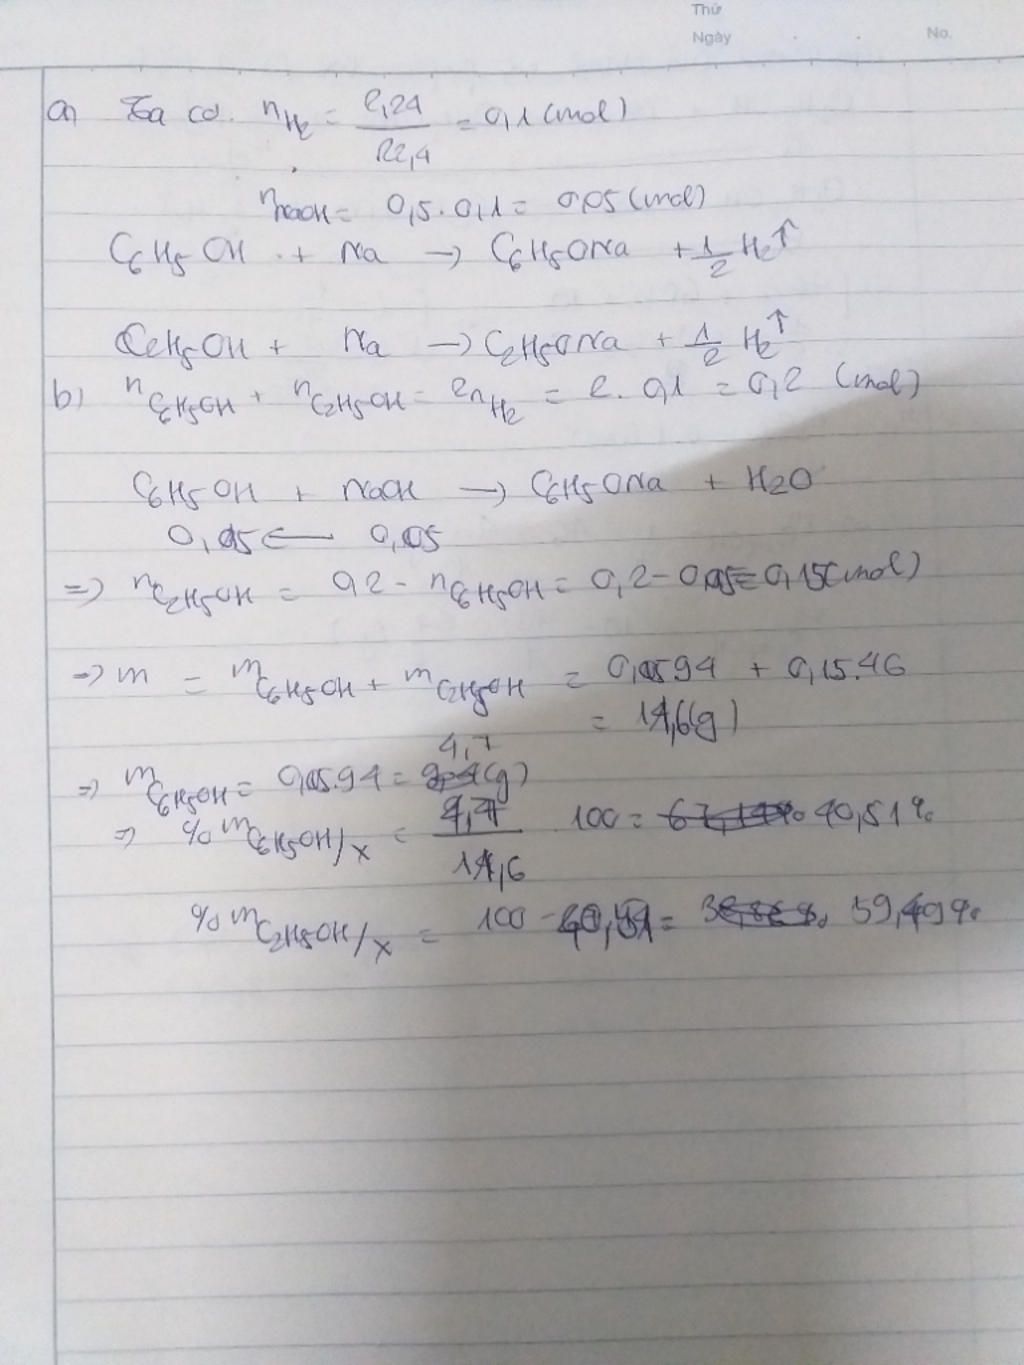 Thứ
Ngày No.
a) Ta có. nH2 = 2,24/22,4 = 0,1 (mol)
nNaOH = 0,5.0,1 = 0,05 (mol)
C6H5OH + Na → C6H5ONa + 1/2 H2↑
C2H5OH + Na → C2H5ONa + 1/2 H2↑
b) nC6H5OH + nC2H5OH = 2nH2 = 2.0,1 = 0,2 (mol)
C6H5OH + NaOH → C6H5ONa + H2O
0,05 ← 0,05
=> nC2H5OH = 0,2 - nC6H5OH = 0,2 - 0,05 = 0,15 (mol)
=> m = mC6H5OH + mC2H5OH = 0,05.94 + 0,15.46
= 11,6(g)
4,7
=> mC6H5OH = 0,05.94 = (g)
=> % mC6H5OH/X = 4,7/11,6 . 100 = 67,14% 40,51%
% mC2H5OH/X = 100 - 40,51 = 59,49%